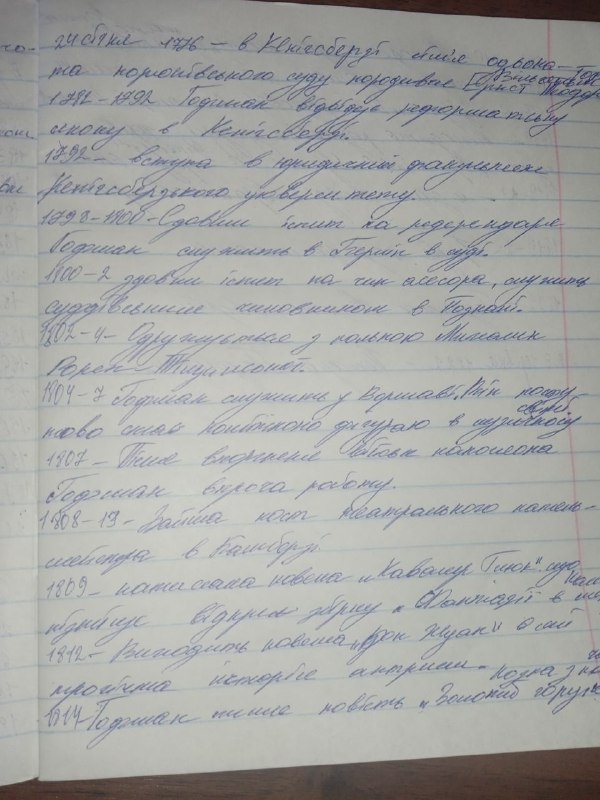 24 січня 1776 – в Кенігсберзі сім'ї адвока-
та королівського суду народився Ернст Теодор
1782-1792 Гофман відвідує реформатську
школу в Кенігсберзі.
1792 – вступа в юридичний факультет
Кенігсбердського університету.
1798-1800 – Здавши іспит на референдаря
Гофман служить в Берлін в суді.
1800-2 здавши іспит на чин асесора, служить
суддівським чиновником в Познані.
1802-4 – Одружується з полькою Михалин
Рорен – Тищинської.
1804-7 Гофман служить у Варшаві. Він посту
пово стає помітною фігурою в музичному
1807 – Після вторгнення військ наполеона
Гофман втрача роботу.
1808-13 – Займа пост театрального капель-
мейстра в Бамберзі
1809 – написана новела „Кавалер Глюк".
пізніше відкрив збірку „Фантазії в
1812 – Виходить новела „Дон Жуан" в ній
трагічна історія актриси.
1814 Гофман пише повість „Золотий горщик